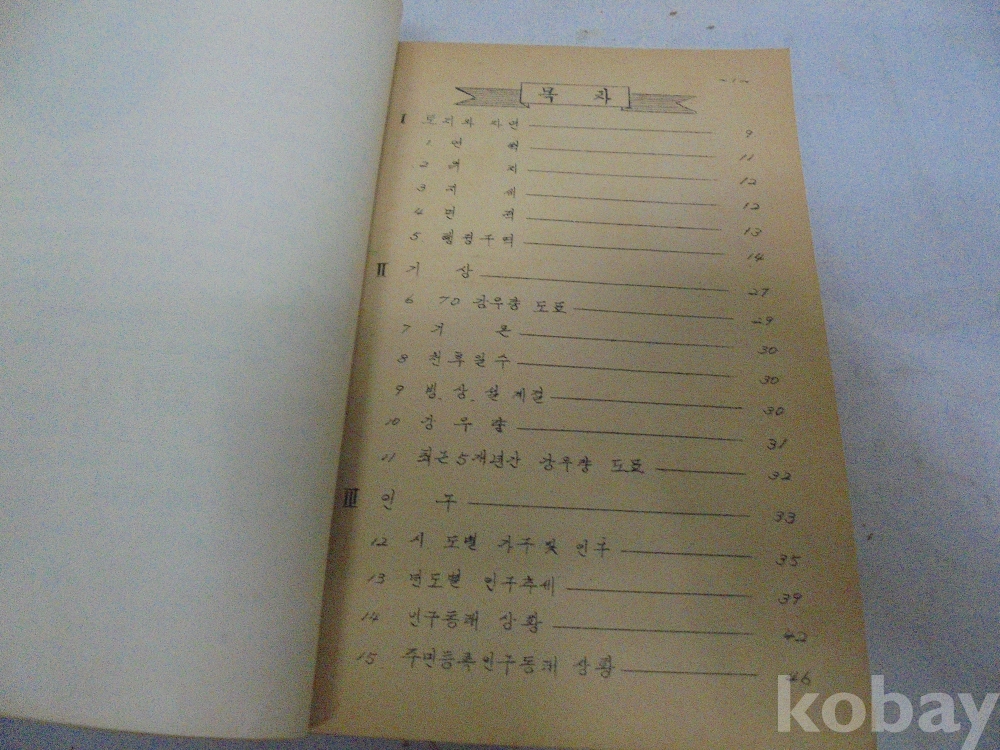 - 1 -
목 차
I 토지 및 9
1 11
2 위 치 12
3 12
4 면 적 13
5 행정구역 14
II 기 상 27
6 70 강우량 도표 29
7 기 온 30
8 천후일수 30
9 30
10 강 우 량 31
11 최근 5개년간 강우량 도표 32
III 인 구 33
12 시 도별 가구 및 인구 35
13 연도별 인구추세 39
14 인구동태 상황 42
15 주민등록인구동태 상황 46
kobay